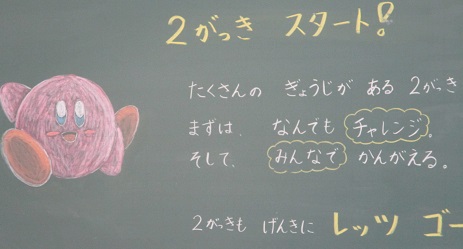 2がっき スタート!
たくさんの ぎょうじが ある 2がっき
まずは、 なんでも チャレンジ。
そして、 みんなで かんがえる。
2がっきも げんきに レッツ ゴー